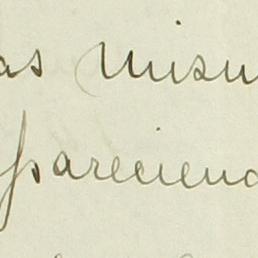 as mism
pareciend